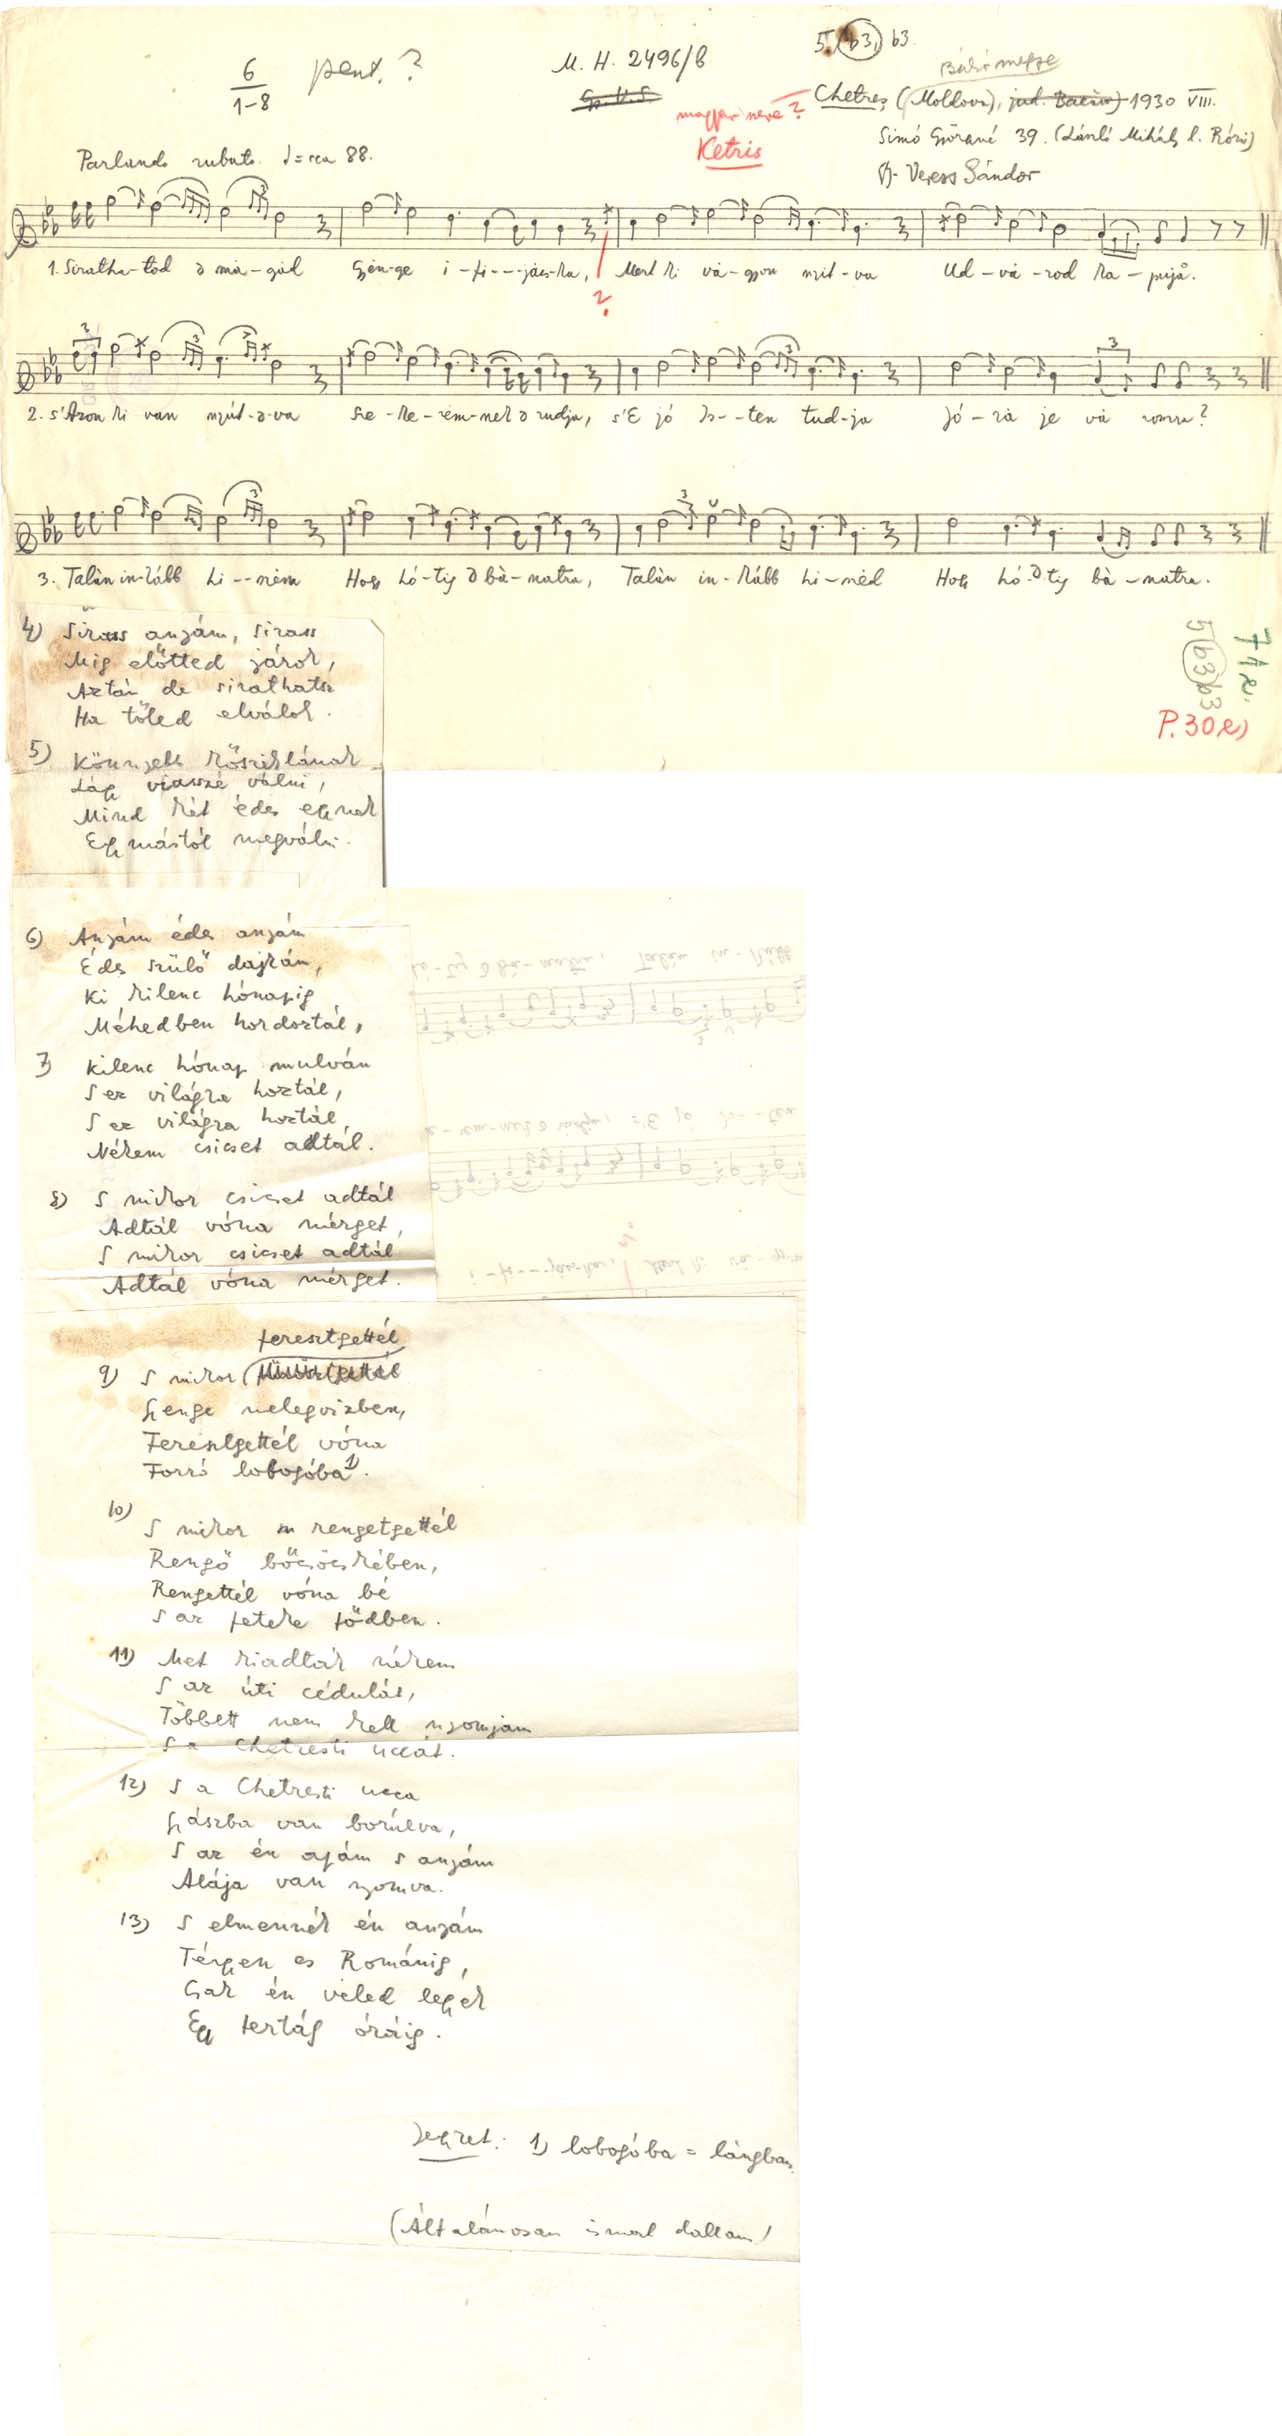 6
1-8
pent. ?
M. H. 2496/b
5 (b3,) b3
Bákó megye
magyar neve?
Ketris
Chetreş (Moldova), jud. Bacău) 1930 VIII.
Simó 39. (László Mihály l. Rózsi)
Veress Sándor
Parlando rubato. = cca 88.
1. Siratha-tod a ma-gád Gyén-ge i-fi---jács-ka, Mert ki vá-gyon nyit-va Ud-vá-rod ka-pujå.
?
2. s'Azon ki van nyút-a-va Sze-ke-rem-nek a rudja, s'E jó Is--ten tud-ja Jó-rá je vá
3. Talán in-kább hi--ném Hogy hó-tig a bá-natra, Talán in-kább hi-néd Hogy hó-a-tig bá-natra.
4) Sirass anyám, sirass
Mig előtted járok,
Aztán de sirathatsz
Ha tőled elválok.
5) Könnyebb kősziklának
Lágy viasszé válni,
Mind két édes egynek
Egymástól megválni.
5 (b3) b3
P. 30 e)
6) Anyám édes anyám
Édes szülő dajkám,
Ki kilenc hónapig
Méhedben hordoztál,
7) Kilenc hónap mulván
S ez világra hoztál,
S ez világra hoztál,
Nékem csicset adtál.
8) S mikor csicset adtál
Adtál vóna mérget,
S mikor csicset adtál
Adtál vóna mérget.
feresztgettél
9) S mikor
Gyenge melegvizben,
Feresztgettél vóna
Forró lobogóba 1).
10) S mikor rengetgettél
Rengő bőcsöcskében,
Rengettél vóna bé
S az fekete fődben.
11) Met kiadták nékem
S az úti cédulát,
Többett nem kell nyomjam
S a Chetresti uccát.
12) S a Chetresti ucca
Gyászba van borúlva,
S az én apám s anyám
Alája van nyomva.
13) S elmennék én anyám
Térgyen es Románig,
Csak én veled legyek
Egy fertág óráig.
Jegyzet: 1) lobogóba = lángban
(Általánosan ismert dallam)